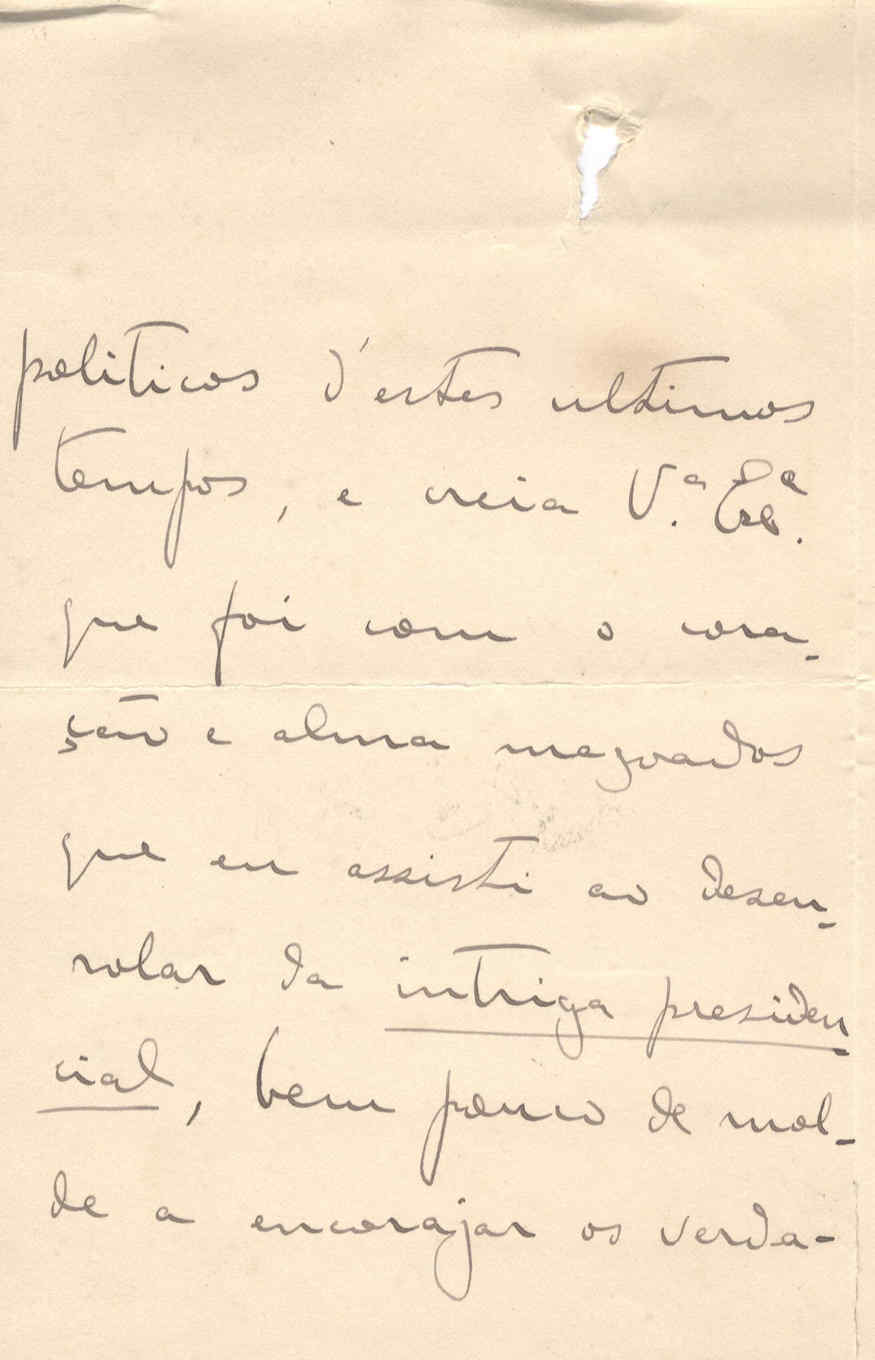 politicos d'estes ultimos
tempos, e creia V.ª Ex.ª
que foi com o cora-
ção e alma magoados
que eu assisti ao desen-
rolar da intriga presiden-
cial, bem pouco de mol-
de a encorajar os verda-